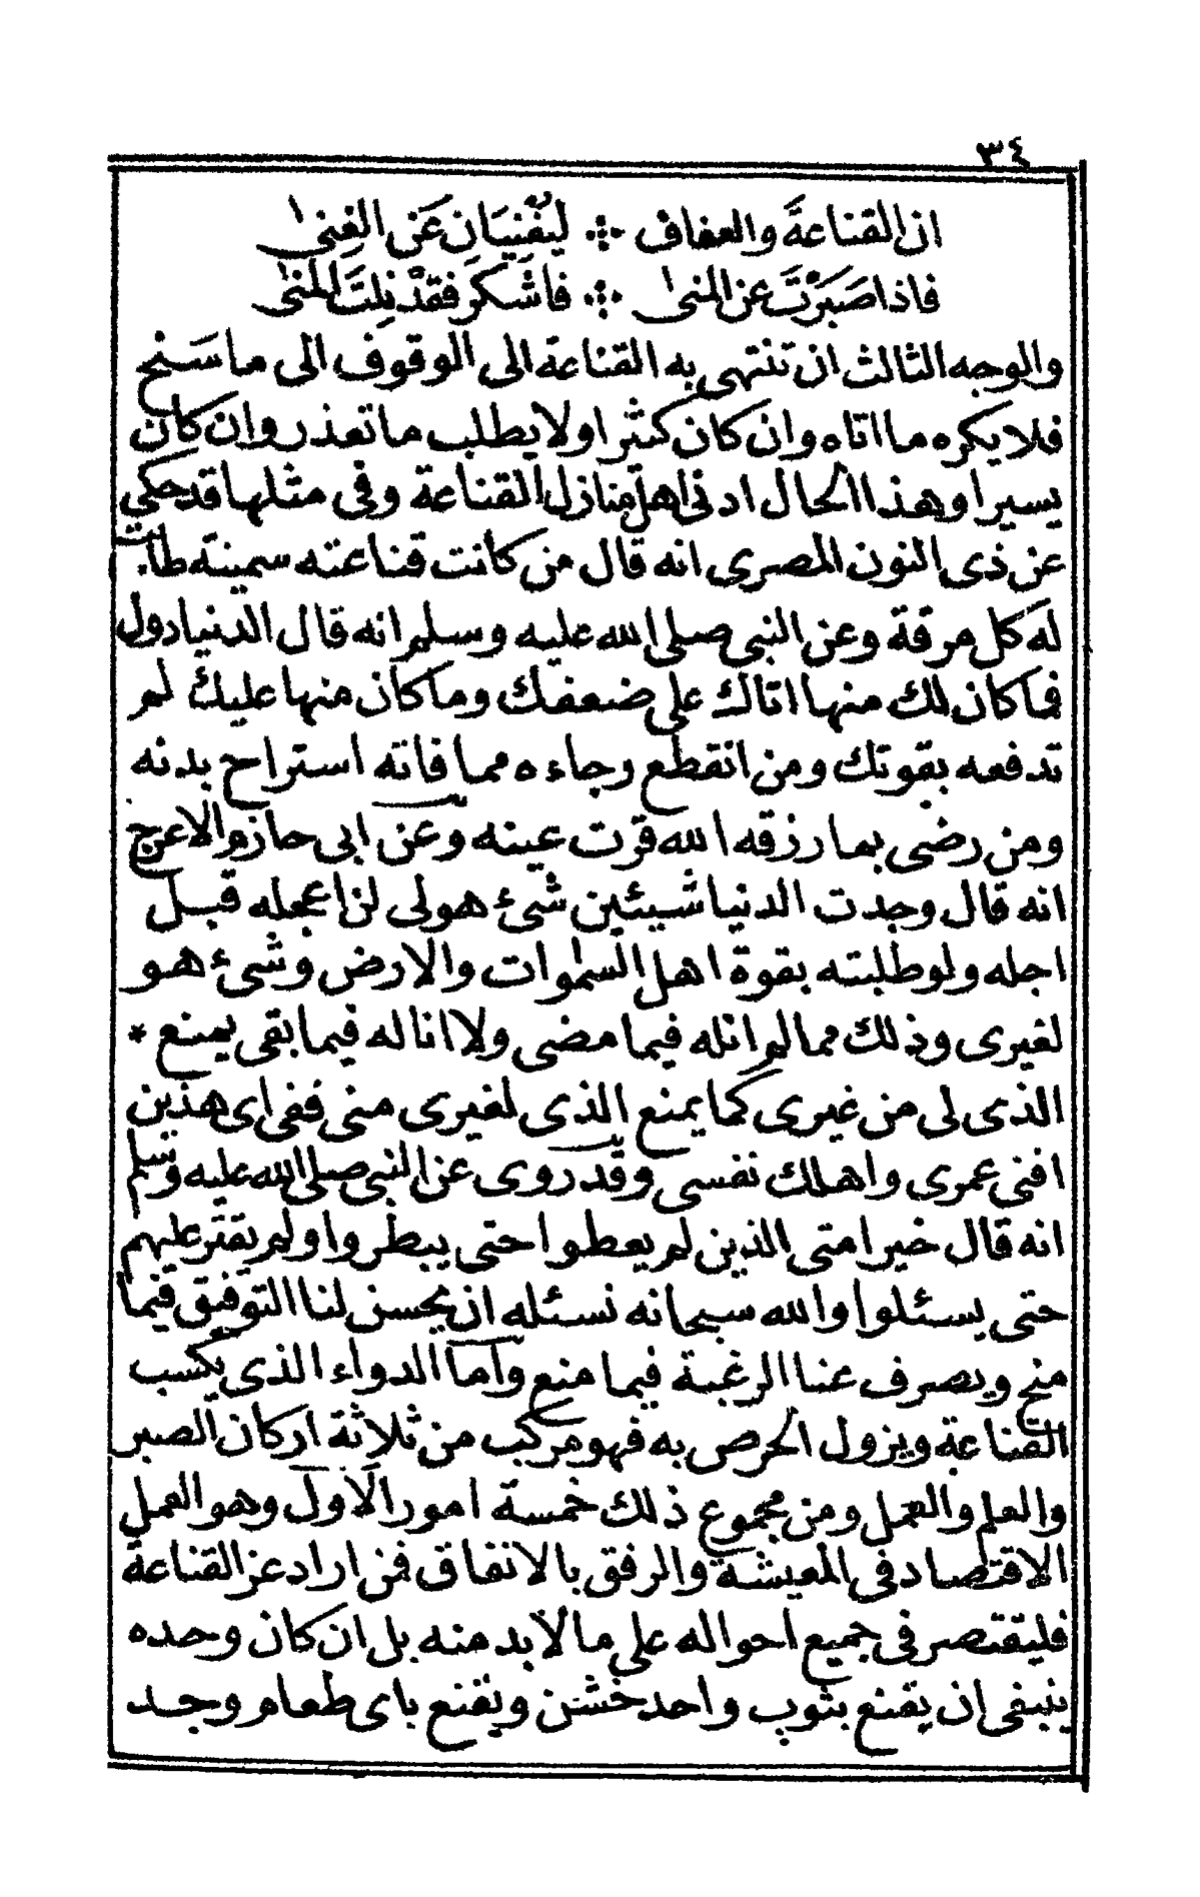 ٣٤
ان القناعةَ والعفافَ ܀ لَيُغْنِيَانِ عَنِ الغِنىٰ
فاذا صَبَرْتَ عن المنىٰ ܀ فاشْكُر فقدْ نِلتَ المُنىٰ
والوجه الثالث ان تنتهى به القناعة الى الوقوف الى ما سَنَح
فلا يكره ما اتاه وان كان كثيرا ولا يطلب ما تعذر وان كان
يسيرا وهذا الحال ادنى اهل منازل القناعة وفى مثلها قد حكى
عن ذى النون المصرى انه قال من كانت قناعته سمينة طابت
له كل مرقة وعن النبى صلى الله عليه وسلم انه قال الدنيا دول
فما كان لك منها اتاك على ضعفك وما كان منها عليك لم
تدفعه بقوتك ومن انقطع رجاءه مما فاته استراح بدنه
ومن رضى بما رزقه الله قرت عينه وعن ابى حازم الاعرج
انه قال وجدت الدنيا شيئين شئ هو لى لن اعجله قبل
اجله ولو طلبته بقوة اهل السموات والارض وشئ هو
لغيرى وذلك مما لم انله فيما مضى ولا اناله فيما بقى يمنع *
الذى لى من غيرى كما يمنع الذى لغيرى منى ففى اى هذين
افنى عمرى واهلك نفسى وقد روى عن النبى صلى الله عليه وسلم
انه قال خير امتى الذين لم يعطوا حتى يبطروا ولم يقتر عليهم
حتى يسئلوا والله سبحانه نسئله ان يحسن لنا التوفيق فيما
منح ويصرف عنا الرغبة فيما منع واما الدواء الذى يكسب
القناعة ويزول الحرص به فهو مركب من ثلاثة اركان الصبر
والعلم والعمل ومن مجموع ذلك خمسة امور الاول وهو العمل
الاقتصاد فى المعيشة والرفق بالانفاق فمن اراد عز القناعة
فليقتصر فى جميع احواله على ما لا بد منه بل ان كان وحده
ينبغى ان يقنع بثوب واحد خشن ويقنع باى طعام وجد